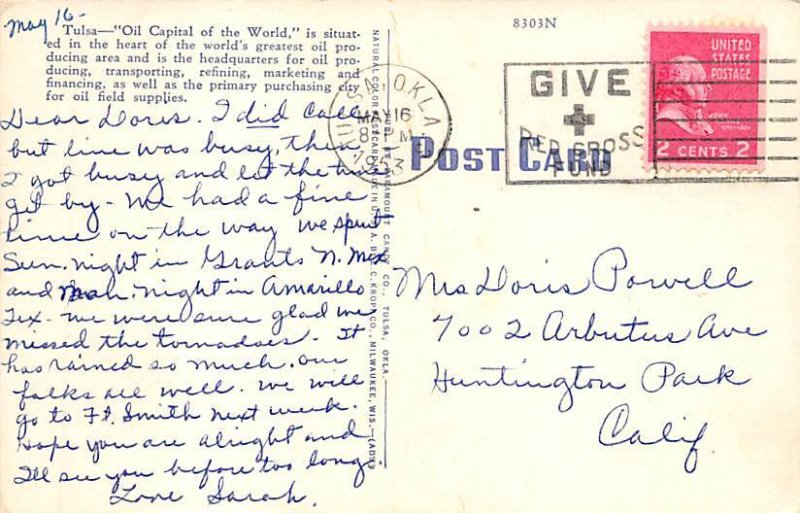 May 16-
Tulsa—"Oil Capital of the World," is situat-
ed in the heart of the world's greatest oil pro-
ducing area and is the headquarters for oil pro-
ducing, transporting, refining, marketing and
financing, as well as the primary purchasing city
for oil field supplies.
Dear Doris. I did call
but line was busy, then
I got busy and let the time
get by - We had a fine
time on the way we spent
Sun. night in Grants N. Mex
and Mon. night in Amarillo
Tex - we were sure glad we
missed the tornadoes. It
has rained so much. our
folks are well. we will
go to Ft. Smith next week.
hope you are alright and
I'll see you before too long.
Love Sarah.
NATURAL COLOR POSTCARD MADE IN U.S.A. BY E. C. KROPP CO., MILWAUKEE, WIS.—(ADS)
PUB. BY PARAMOUNT CANDY CO., TULSA, OKLA.
8303N
OKLA.
MAY 16
8 PM
GIVE
RED CROSS
FUND
UNITED
STATES
POSTAGE
JOHN
2 CENTS 2
POST CARD
Mrs Doris Powell
7002 Arbutus Ave
Huntington Park
Calif